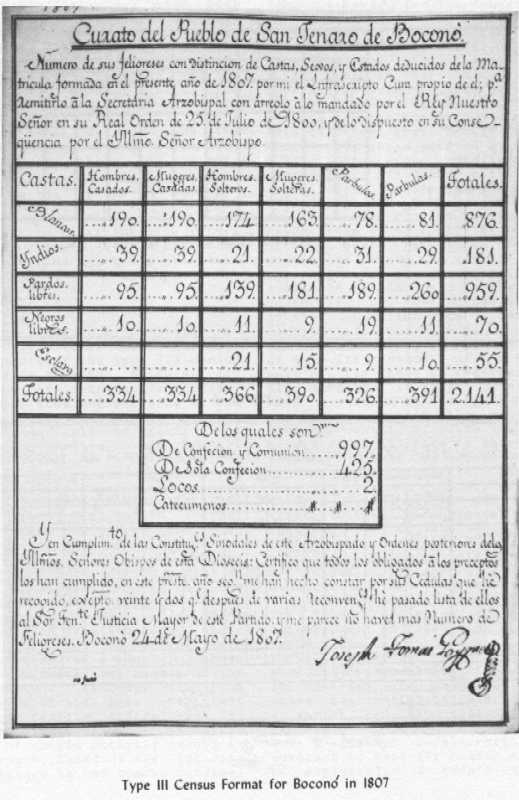 1807
Curato del Pueblo de San Jenaro de Boconò.
Número de sus feligreses con distincion de Castas, Sexos, y Estados deducidos de la Ma-
tricula formada en el presente año de 1807. por mi el Infraescripto Cura propio de el; pª
Remitirlo à la Secretaria Arzobispal con arreglo à lo mandado por el Rey Nuestro
Señor en su Real Orden de 25. de Julio de 1800, y de lo dispuesto en su Conse-
qüencia por el Yllmo. Señor Arzobispo.
Castas. Hombres Casados. Mugeres Casadas. Hombres Solteros. Mugeres Solteras. Parbulos Parbulas. Totales.
Blancos. 190. 190. 174. 163. 78. 81. 876.
Yndios. 39. 39. 21. 22. 31. 29. 181.
Pardos libres. 95. 95. 139. 181. 189. 260. 959.
Negros libres. 10. 10. 11. 9. 19. 11. 70.
Esclavos 21. 15. 9. 10. 55.
Totales. 334. 334. 366. 390. 326. 391. 2.141.
De los quales son
De Confecion y Comunion 997.
De Sola Confecion 425.
Locos 2.
Catecumenos # # #
Y en Cumplim.to de las Constituy.s Sinodales de este Arzobispado y Ordenes posteriores de los
Yllmos. Señores Obispos de esta Diosecis: Certifico que todos los obligados à los preceptos
los han cumplido, en este preste. año seg.n me han hecho constar por sus Cedulas que he
recogido, excepto veinte y dos q.e despues de varias Reconven.s he pasado lista de ellos
al Sor. Ten.te Justicia Mayor de este Partido, y me parece no haver mas Numero de
Feligreses. Boconò 24 de Mayo de 1807.
Joseph Tomas
Type III Census Format for Boconó in 1807